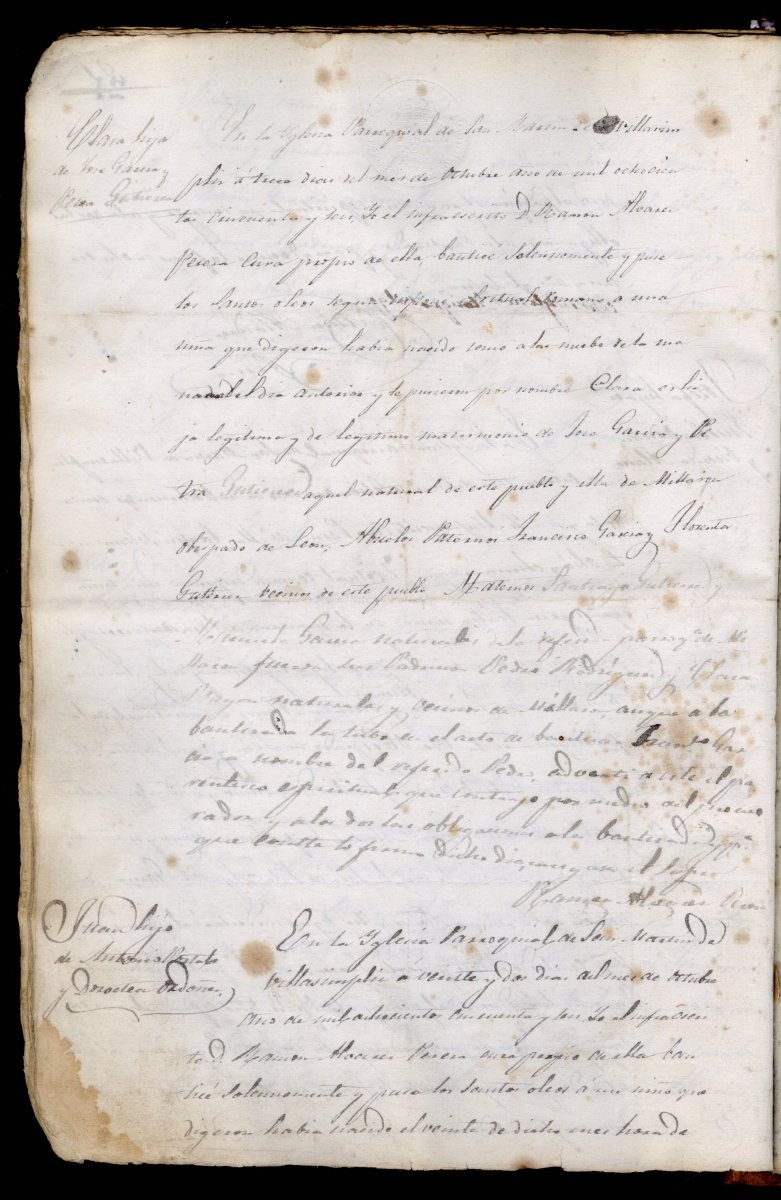 Clara hija
de Jose Garcia y
Petra Gutierrez
En la Yglesia Parroquial de San Martin de Villasim
pliz á trece dias del mes de Octubre año de mil ochocien
tos cincuenta y seis, Yo el infraescrito D. Ramon Alvarez
Perera cura propio de ella, bauticé solennemente y puse
los santos oleos segun ritual romano a una
niña que digeron habia nacido como a las nuebe de la ma
ñana del dia anterior y le pusieron por nombre Clara es hi
ja legitima y de legitimo matrimonio de Jose Garcia y Pe
tra Gutierrez aquel natural de este pueblo y ella de Millaron
obispado de Leon, Abuelos Paternos Francisco Garcia y Florenta
Gutierrez vecinos de este pueblo Maternos Santiago Gutierrez y
Garcia naturales de la referida parroqª de Mi
llaron fueron sus Padrinos Pedro Rodriguez y Clara
naturales y vecinos de Millaron, aunque a la
bautizada la tubo en el acto de bautizar Franco Gar
cia a nombre del referido Pedro, adverti a este el pa
rentesco espiritual que contrajo por medio del procu
rador y a los dos las obligaciones a la bautizada y pª
que conste lo firmo dicho dia, mes y año ut supra
Ramon Alvarez Perera
Juan hijo
de Antonio
y Dorotea Ordoñez
En la Yglesia Parroquial de San Martin de
Villasimpliz á veinte y dos dias del mes de Octubre
año de mil ochocientos cincuenta y seis Yo el infraescri
to D. Ramon Alvarez Perera cura propio de ella bau
ticé solennemente y puse los santos oleos á un niño que
digeron habia nacido el veinte de dicho mes hora de